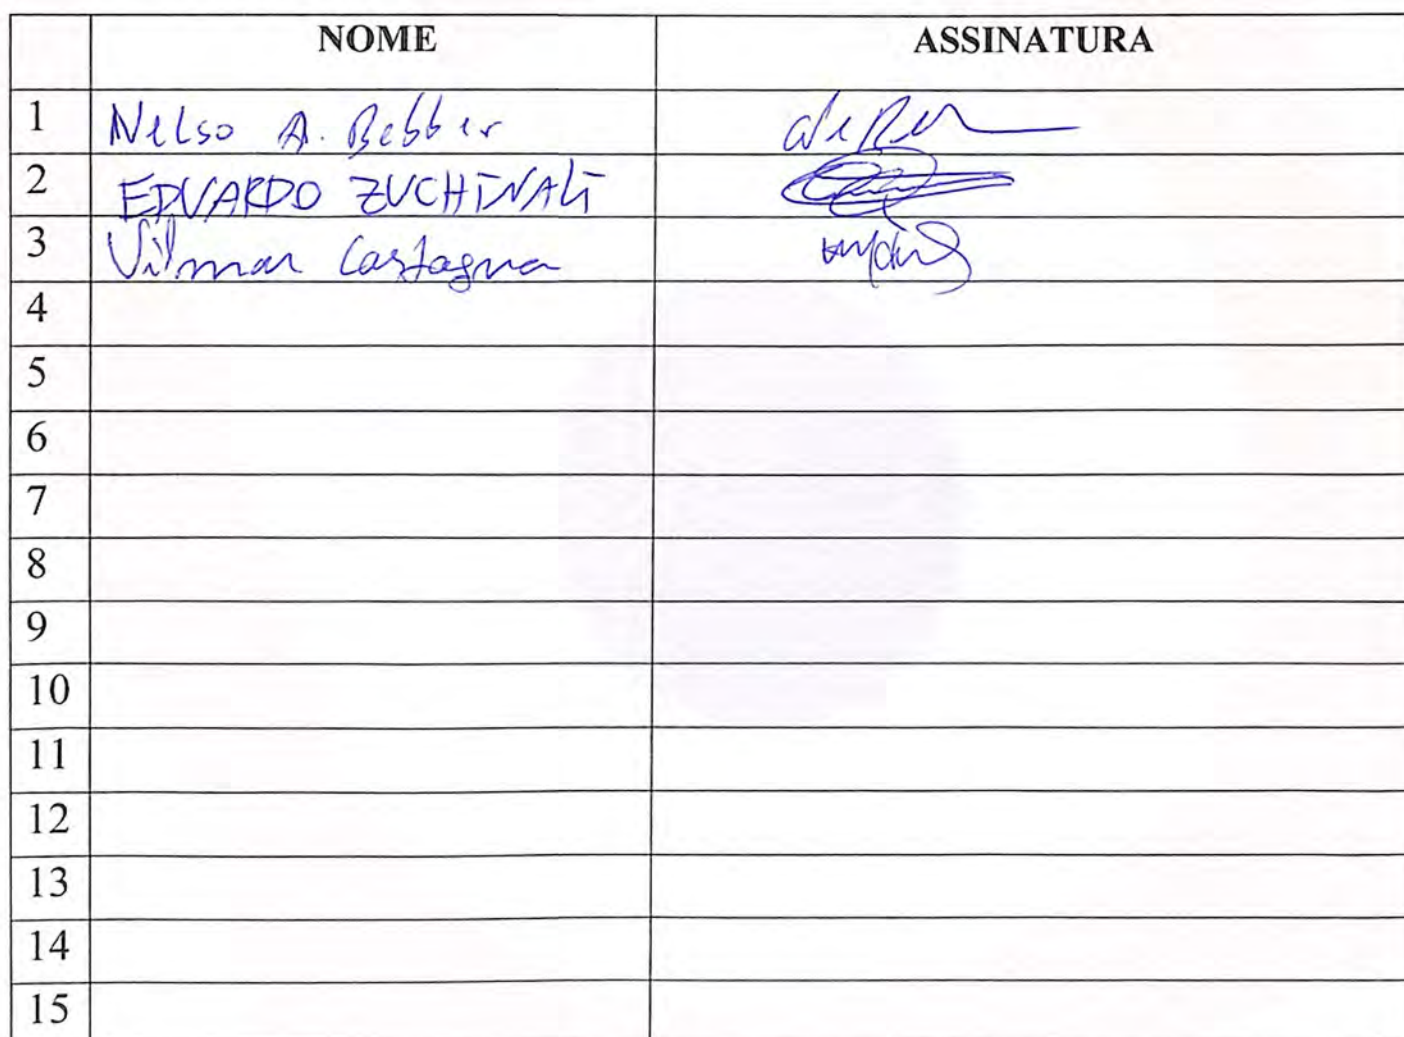 NOME ASSINATURA
1 Nelso A. Bebber
2 EDUARDO ZUCHINALI
3 Vilmar Castagna
4
5
6
7
8
9
10
11
12
13
14
15